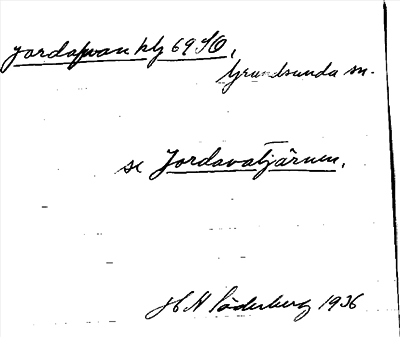 Jordavan klj 69 SO,
Grundsunda sn.
se Jordavatjärnen.
H H Söderberg 1936